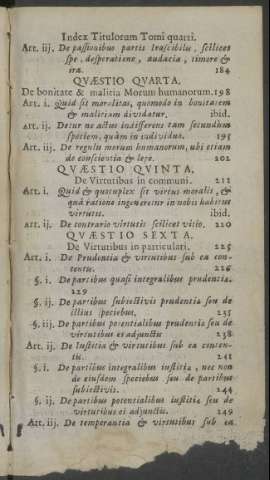 Index Titulorum Tomi quarti.
Art. iij. De passionibus partis Irascibilis, scilicet
spe, desperatione, audacia, timore &
ira. 184
QVÆSTIO QVARTA.
De bonitate & malitia Morum humanorum. 198
Art. i. Quid sit moralitas, quomodo in bonitatem
& malitiam dividatur. ibid.
Art. ij. Detur ne actus indifferens tam secundùm
speciem, quàm in individuo. 195
Art. iij. De regulis morum humanorum, ubi etiam
de conscientia & lege. 202
QVÆSTIO QVINTA.
De Virtutibus in communi. 212
Art. i. Quid & quotuplex sit virtus moralis, &
quâ ratione ingeneretur in nobis habitus
virtutis. ibid.
Art. ij. De contrario virtutis scilicet vitio. 220
QVÆSTIO SEXTA.
De Virtutibus in particulari. 225
Art. i. De Prudentia & virtutibus sub ea con-
tentis. 226
§. i. De partibus quasi integralibus prudentiæ.
229
§. ij. De partibus subiectivis prudentiæ seu de
illius speciebus. 235
§. iij. De partibus potentialibus prudentiæ seu de
virtutibus ei adjunctis 238
Art. ij. De Iustitia & virtutibus sub ea conten-
tis. 241
§. i. De partibus integralibus iustitiæ, nec non
de eiusdem speciebus seu de partibus
subiectivis. 244
§. ij. De partibus potentialibus iustitiæ seu de
virtutibus ei adjunctis. 249
Art. iij. De temperantia & virtutibus sub ea